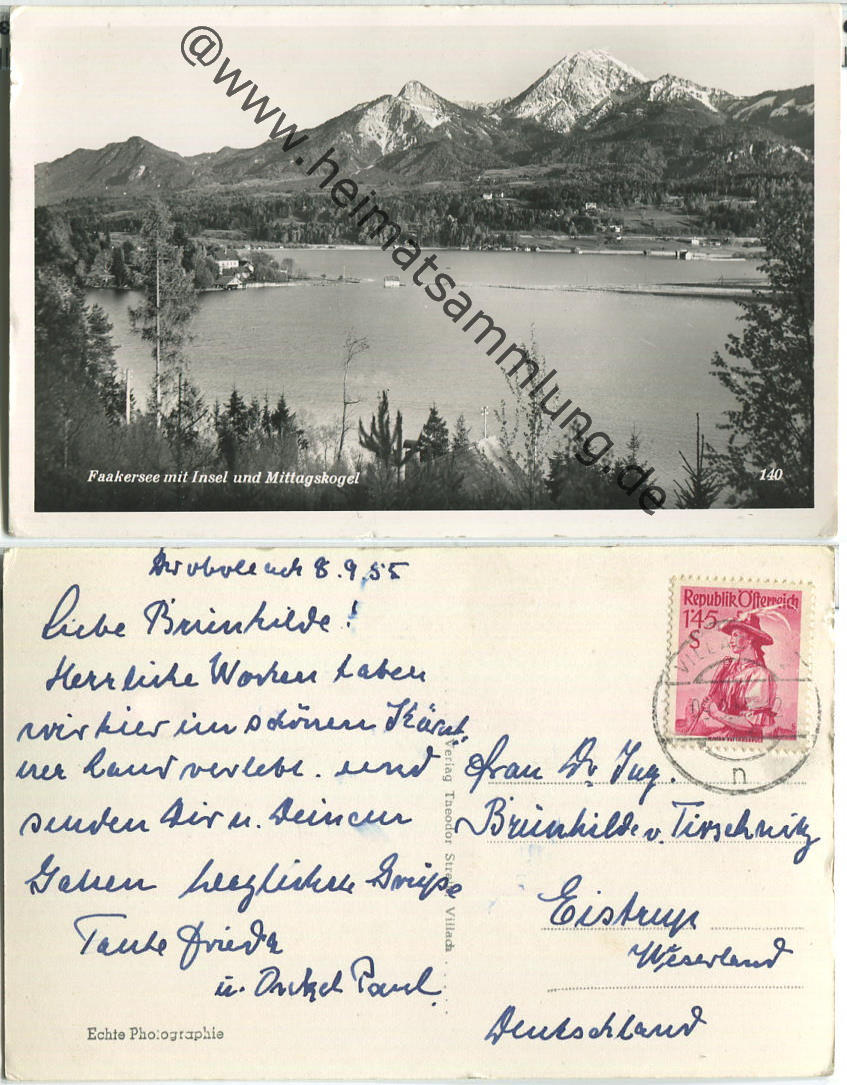 @www.heimatsammlung.de
Faakersee mit Insel und Mittagskogel
140
Drobollach 8.9.55
Liebe Brünhilde!
Herrliche Wochen haben
wir hier im schönen Kärnt-
ner Land verlebt. und
senden Dir u. Deinem
Gatten herzlichste Grüße
Tante Frieda
u. Onkel Paul.
Echte Photographie
Verlag Theodor Villach
Republik Österreich
1.45
S
VILLA
n
Frau Dr Ing.
Brünhilde v. Tirschnitz
Eistrup
Weserland
Deutschland